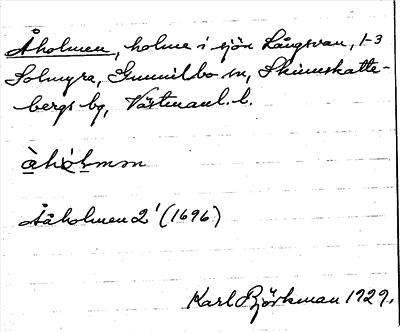 Åholmen, holme i sjön Långsvan, 1-3
Solmyra, Gunnilbo sn, Skinnskatte-
bergs bg, Västmanl. l.
àhòlmən
Ååholmen 2' (1696)
Karl Björkman 1929.